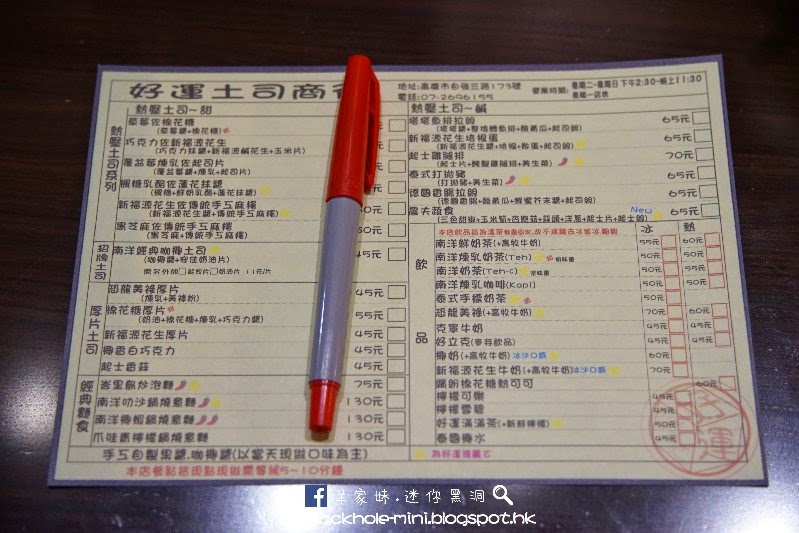 好運土司商
地址:高雄市自強三路173號
電話:07-2696155
營業時間:
星期二~星期日 下午2:30~晚上11:30
星期一店休
熱壓土司系列
熱壓土司~甜
草莓佐棉花糖
(草莓醬+棉花糖)
巧克力佐新福源花生
(巧克力抹醬+新福源鹹花生+玉米片)
覆盆莓煉乳佐起司片
(覆盆莓醬+煉乳+起司片)
楓糖乳酪佐蓮花抹醬
(楓糖+鮮奶乳酪+蓮花抹醬)
新福源花生佐傳統手工麻糬
(新福源花生醬+傳統手工麻糬)
50元
黑芝麻佐傳統手工麻糬
(黑芝麻+傳統手工麻糬)
50元
招牌土司
南洋經典咖椰土司
45元
(咖椰醬+特佳奶油)
需另外加 起司片 奶油片 11元/片
厚片土司
恐龍美祿厚片
45元
(煉乳+美祿粉)
棉花糖厚片
55元
(奶油+棉花糖+煉乳+巧克力醬)
新福源花生厚片
45元
椰香白巧克力
45元
起士香蒜
45元
經典麵食
峇里島炒泡麵
75元
南洋叻沙鍋燒意麵
130元
南洋椰蝦鍋燒意麵
130元
爪哇青檸檬鍋燒意麵
130元
手工自製果醬.咖椰醬(以當天現做口味為主)
本店餐點皆現點現做需等候5~10分鐘
熱壓土司~鹹
塔塔魚排拉餉
65元
新福源花生培根蛋
65元
起士雞腿排
70元
(起士片+醃製雞腿排+美生菜)
泰式打拋豬
65元
(打拋豬+美生菜)
德國香腸拉餉
65元
(德國香腸+酸黃瓜+蜂蜜芥末醬+起司餉)
農夫蔬食
New
65元
飲品
冰
熱
南洋鮮奶茶(+高牧牛奶)
55元
60元
南洋煉乳奶茶(Teh)
50元
50元
南洋奶茶(Teh-C)
50元
50元
南洋煉乳咖啡(Kopi)
50元
50元
泰式手標奶茶
50元
恐龍美祿(+高牧牛奶)
70元
60元
克寧牛奶
45元
45元
好立克(麥特飲品)
45元
45元
椰奶(+高牧牛奶)冰沙口感
60元
新福源花生牛奶(+高牧牛奶)冰沙口感
70元
繽紛棉花糖熱可可
60元
檸檬可樂
45元
檸檬雪碧
45元
好運滿滿茶(+新鮮檸檬)
50元
泰國椰水
45元
為好運推薦
好運
羊家妹.迷你黑洞
ockhole-mini.blogspot.hk